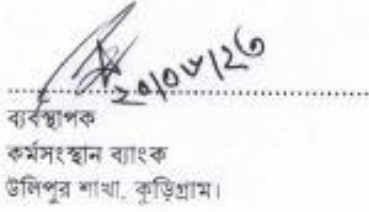 ব্যবস্থাপক
কর্মসংস্থান ব্যাংক
উলিপুর শাখা, কুড়িগ্রাম।